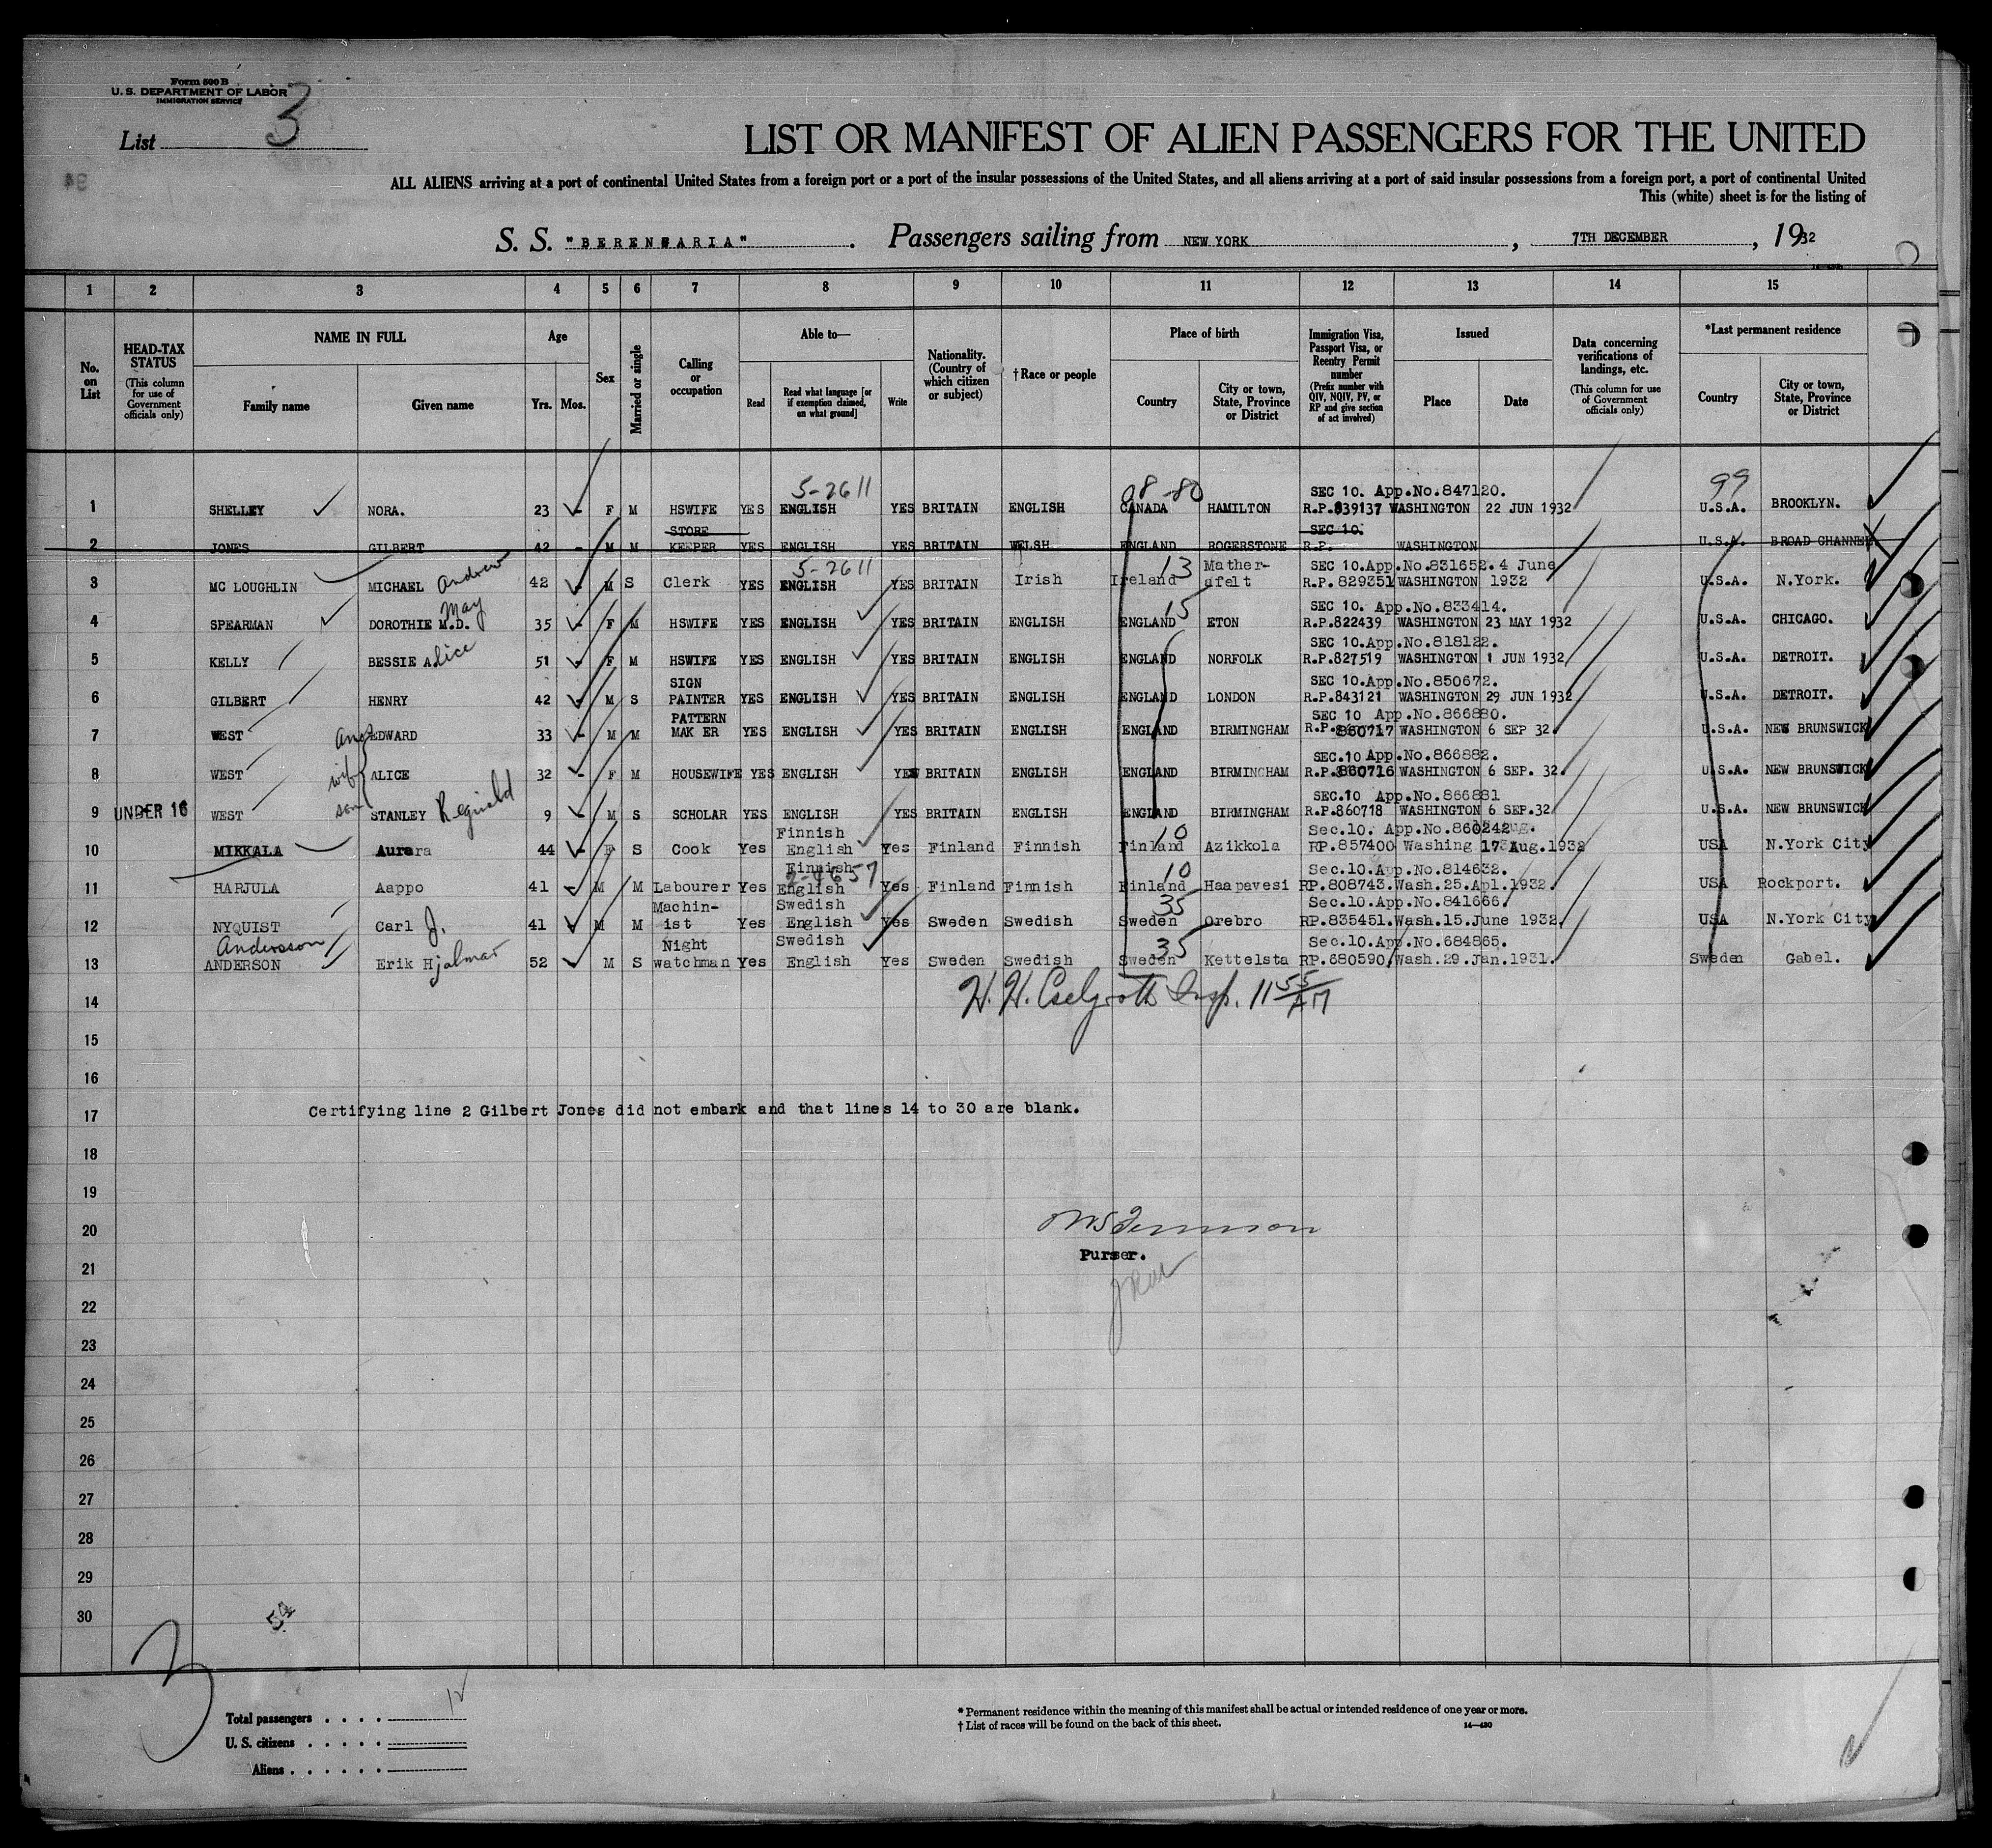 Form 500 B
U. S. DEPARTMENT OF LABOR
IMMIGRATION SERVICE
List 3
LIST OR MANIFEST OF ALIEN PASSENGERS FOR THE UNITED
ALL ALIENS arriving at a port of continental United States from a foreign port or a port of the insular possessions of the United States, and all aliens arriving at a port of said insular possessions from a foreign port, a port of continental United
This (white) sheet is for the listing of
S. S. "BERENGARIA" . Passengers sailing from NEW YORK , 7TH DECEMBER , 1932
1 2 3 4 5 6 7 8 9 10 11 12 13 14 15
No. on List
HEAD-TAX STATUS (This column for use of Government officials only)
NAME IN FULL
Family name Given name
Age
Yrs. Mos.
Sex
Married or single
Calling or occupation
Able to—
Read Read what language [or if exemption claimed, on what ground] Write
Nationality. (Country of which citizen or subject)
†Race or people
Place of birth
Country City or town, State, Province or District
Immigration Visa, Passport Visa, or Reentry Permit number (Prefix number with QIV, NQIV, PV, or RP and give section of act involved)
Issued
Place Date
Data concerning verifications of landings, etc. (This column for use of Government officials only)
*Last permanent residence
Country City or town, State, Province or District
5-2611 08-80 SEC 10. App.No.847120. 99
1 SHELLEY NORA. 23 - F M HSWIFE YES ENGLISH YES BRITAIN ENGLISH CANADA HAMILTON R.P.839137 WASHINGTON 22 JUN 1932 U.S.A. BROOKLYN.
STORE SEC 10.
2 JONES GILBERT 42 - M M KEEPER YES ENGLISH YES BRITAIN WELSH ENGLAND ROGERSTONE R.P. WASHINGTON U.S.A. BROAD CHANNEL
Andrew 5-2611 13 Mather- SEC 10. App.No.831652. 4 June
3 MC LOUGHLIN MICHAEL 42 - M S Clerk YES ENGLISH YES BRITAIN Irish Ireland afelt R.P. 829351 WASHINGTON 1932 U.S.A. N.York.
May 15 SEC 10. App.No.833414.
4 SPEARMAN DOROTHIE M.D. 35 - F M HSWIFE YES ENGLISH YES BRITAIN ENGLISH ENGLAND ETON R.P.822439 WASHINGTON 23 MAY 1932 U.S.A. CHICAGO.
SEC 10.App.No.818122.
5 KELLY BESSIE Alice 51 - F M HSWIFE YES ENGLISH YES BRITAIN ENGLISH ENGLAND NORFOLK R.P.827519 WASHINGTON 1 JUN 1932 U.S.A. DETROIT.
SIGN SEC 10.App.No.850672.
6 GILBERT HENRY 42 - M S PAINTER YES ENGLISH YES BRITAIN ENGLISH ENGLAND LONDON R.P.843121 WASHINGTON 29 JUN 1932 U.S.A. DETROIT.
PATTERN SEC 10 App.No.866880.
7 WEST and EDWARD 33 - M M MAKER YES ENGLISH YES BRITAIN ENGLISH ENGLAND BIRMINGHAM R.P.860717 WASHINGTON 6 SEP 32. U.S.A. NEW BRUNSWICK
SEC.10 App.No.866882.
8 WEST wife ALICE 32 - F M HOUSEWIFE YES ENGLISH YES BRITAIN ENGLISH ENGLAND BIRMINGHAM R.P.860716 WASHINGTON 6 SEP. 32. U.S.A. NEW BRUNSWICK
SEC.10 App.No.866881
9 UNDER 16 WEST son STANLEY Reginald 9 - M S SCHOLAR YES ENGLISH YES BRITAIN ENGLISH ENGLAND BIRMINGHAM R.P.860718 WASHINGTON 6 SEP.32 U.S.A. NEW BRUNSWICK
Finnish 10 Sec.10. App.No.860242
10 MIKKALA Aurora 44 - F S Cook Yes English Yes Finland Finnish Finland Azikkola RP.857400 Washing 17 Aug.1932 USA N.York City
Finnish 10 Sec.10.App.No.814632.
11 HARJULA Aappo 41 - M M Labourer Yes English Yes Finland Finnish Finland Haapavesi RP.808743.Wash.25.Apl.1932. USA Rockport.
Machin- Swedish 35 Sec.10.App.No.841666.
12 NYQUIST Carl J. 41 M M ist Yes English Yes Sweden Swedish Sweden Orebro RP.835451.Wash.15.June 1932. USA N.York City
Andersson Night Swedish 35 Sec.10.App.No.684865.
13 ANDERSON Erik Hjalmar 52 M S watchman Yes English Yes Sweden Swedish Sweden Kettelsta RP.680590.Wash.29.Jan.1931. Sweden Gabel.
14 Insp. 11 55 AM
15
16
17 Certifying line 2 Gilbert Jones did not embark and that lines 14 to 30 are blank.
18
19
20
Purser.
21
22
23
24
25
26
27
28
29
30
54
3
Total passengers . . . . 12
U. S. citizens . . . . .
Aliens . . . . . .
* Permanent residence within the meaning of this manifest shall be actual or intended residence of one year or more.
† List of races will be found on the back of this sheet. 14—430